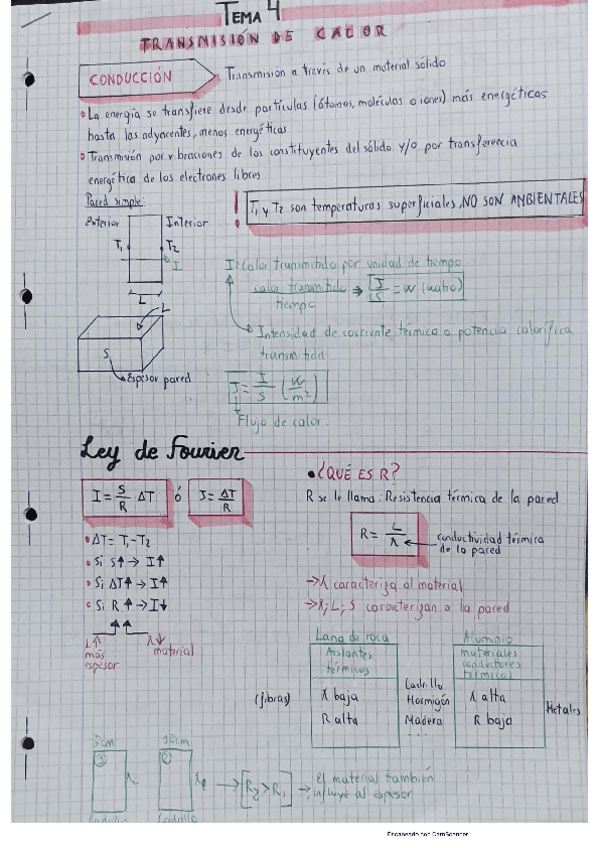 TEMA 4
TRANSMISIÓN DE CALOR
CONDUCCIÓN
Transmisión a través de un material sólido
• La energía se transfiere desde partículas (átomos, moléculas o iones) más energéticas
hasta las adyacentes, menos energéticas
• Transmisión por vibraciones de los constituyentes del sólido y/o por transferencia
energética de los electrones libres
Pared simple:
Exterior Interior
T₁ T₂
I
L
! T₁ y T₂ son temperaturas superficiales, NO SON AMBIENTALES
I: Calor transmitido por unidad de tiempo
calor transmitido / tiempo ⇒ J/S = W (vatio)
Intensidad de corriente térmica o potencia calorífica
transmitida
L
S
Espesor pared
J = I/S (W/m²)
Flujo de calor.
Ley de Fourier
I = S/R ΔT ó J = ΔT/R
• ΔT = T₁ - T₂
• Si S↑ → I↑
• Si ΔT↑ → I↑
• Si R↑ → I↓
L↑ λ↓
más material
espesor
• ¿QUÉ ES R?
R se le llama: Resistencia térmica de la pared
R = L/λ ← conductividad térmica
de la pared
→ λ caracteriza al material
→ λ; L; S caracterizan a la pared
Lana de roca
Aislantes
térmicos
(fibras)
λ baja
R alta
Ladrillo
Hormigón
Madera
...
Aluminio
materiales
conductores
térmicos
λ alta
R baja
Metales
5cm 10cm
① ②
λ
→ [R₂ > R₁] → el material también
influye al espesor
Ladrillo Ladrillo
Escaneado con CamScanner